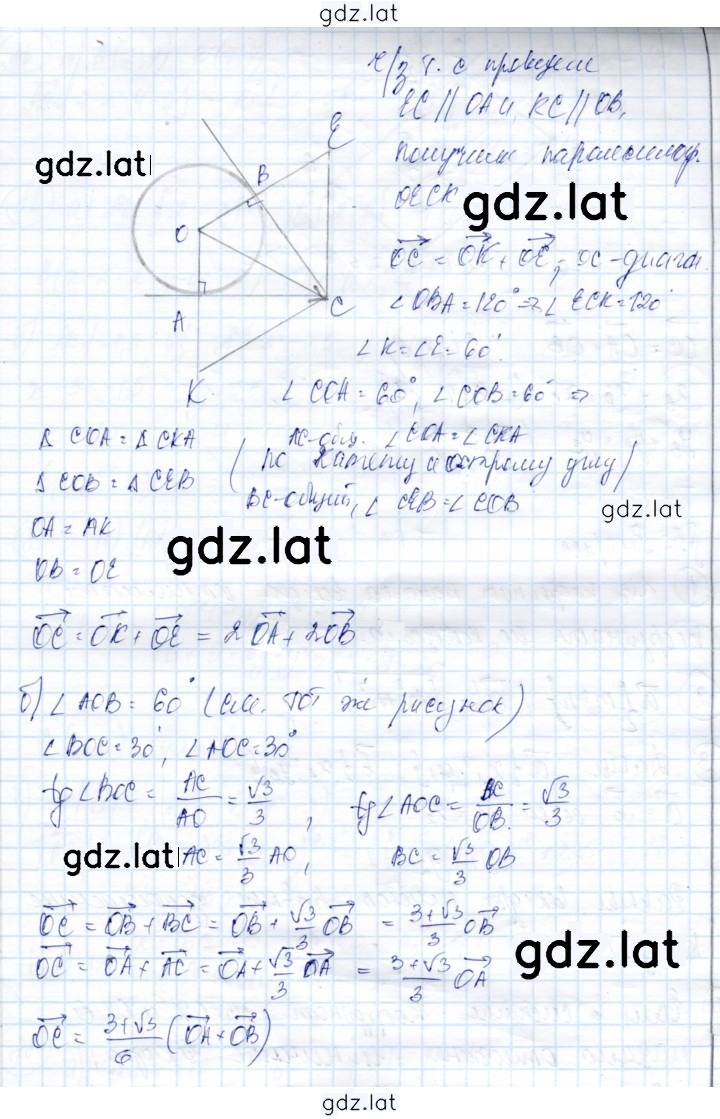 gdz.lat
ч/з т. С проведем
EC || OA и KC || OB,
получим параллелогр.
OECK
gdz.lat
gdz.lat
E
B
O
A
C
K
OC = OK + OE, OC - диагон.
∠OBA = 120° ⇒ ∠ECK = 120°
∠K = ∠E = 60°
∠COA = 60°, ∠COB = 60° ⇒
Δ COA = Δ CKA
AC - общ. ∠COA = ∠CKA
(по катету и острому углу)
Δ COB = Δ CEB
BC - общий, ∠CEB = ∠COB
gdz.lat
OA = AK
gdz.lat
OB = OE
OC = OK + OE = 2OA + 2OB
б) ∠AOB = 60° (см. тот же рисунок)
∠BOC = 30°, ∠AOC = 30°
tg∠BOC = AC/AO = √3/3, tg∠AOC = BC/OB = √3/3
gdz.lat
AC = √3/3 AO, BC = √3/3 OB
OC = OB + BC = OB + √3/3 OB = 3+√3/3 OB
OC = OA + AC = OA + √3/3 OA = 3+√3/3 OA
gdz.lat
OC = 3+√3/6 (OA + OB)
gdz.lat